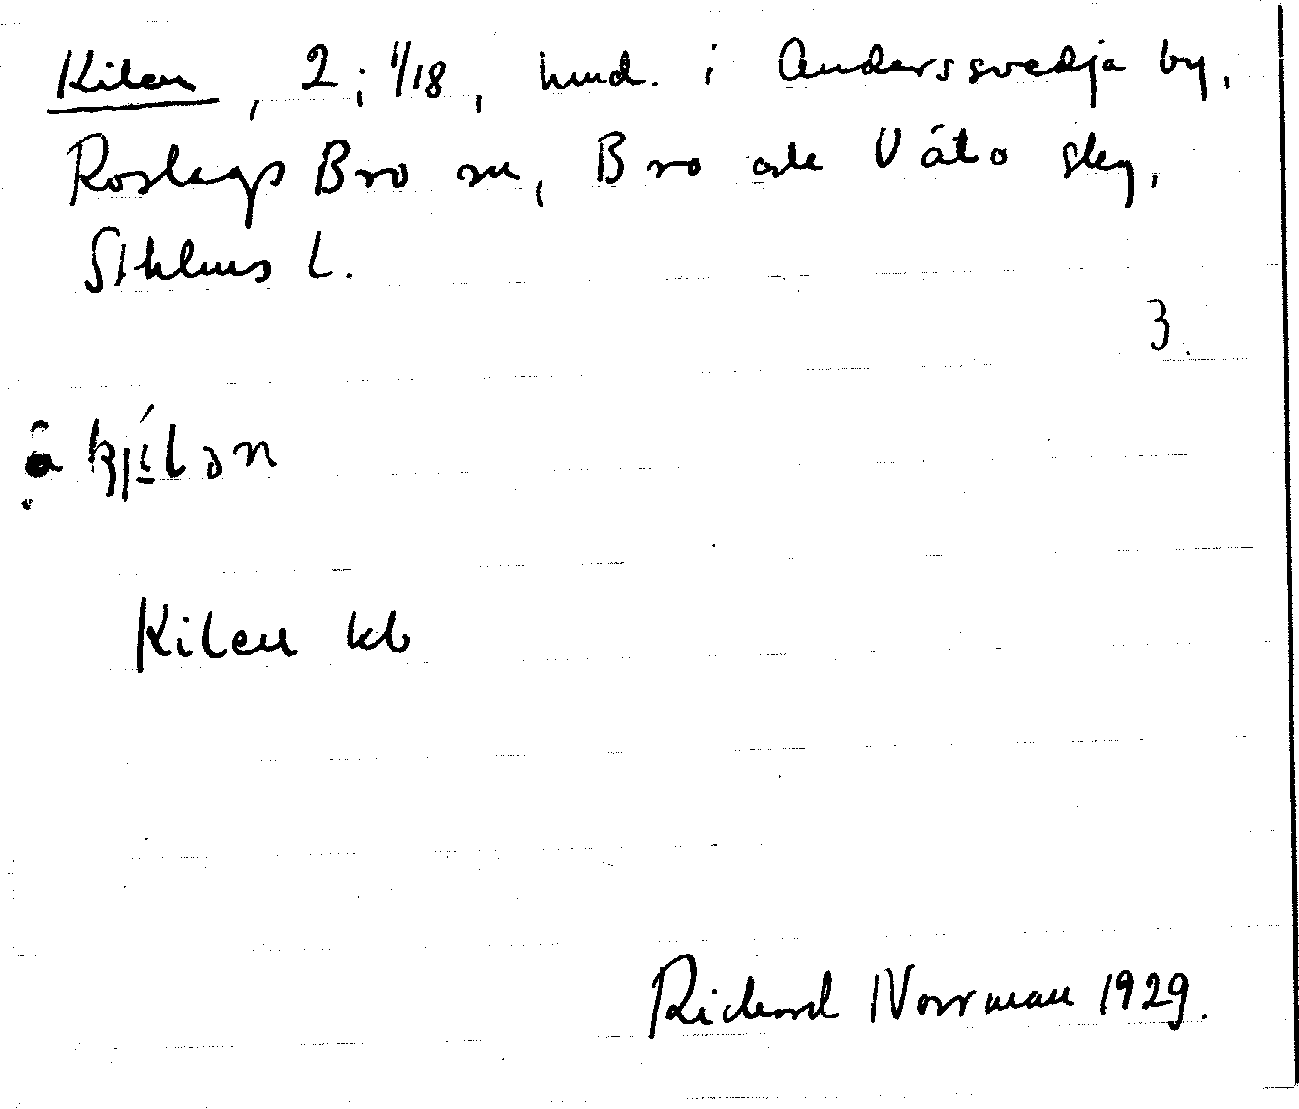 Kilen, 2; 1/18, hmd. i Anderssvedja by,
Roslags Bro sn, Bro och Vätö skg,
Sthlms l.
3.
kjílən
Kilen kb
Richard Norrman 1929.